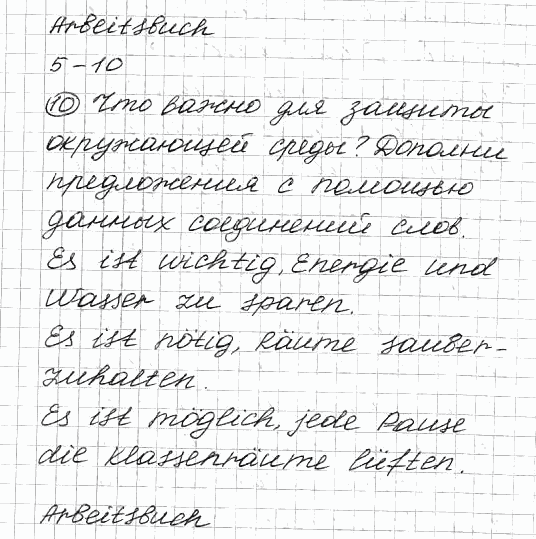 Arbeitsbuch
5-10
10 Что важно для защиты
окружающей среды? Дополни
предложения с помощью
данных соединений слов.
Es ist wichtig, Energie und
Wasser zu sparen.
Es ist nötig, Räume sauber-
zuhalten.
Es ist möglich, jede Pause
die Klassenräume lüften.
Arbeitsbuch